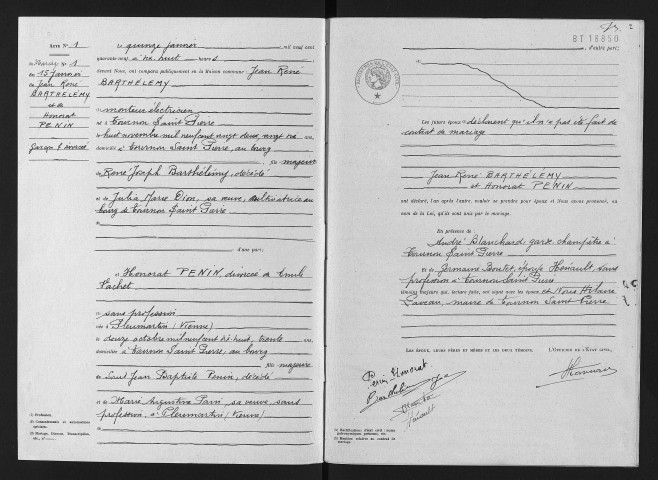 ACTE N° 1
Mariage N° 1
15 Janvier
Jean René
BARTHÉLEMY
et de
Honorat
PENIN
Le quinze janvier, mil neuf cent
quarante neuf à dix huit heures
devant Nous, ont comparu publiquement en la Maison commune : Jean René
BARTHÉLEMY
monteur électricien
né à Tournon Saint Pierre
le huit novembre mil neuf cent vingt deux, vingt six ans,
domicilié à Tournon Saint Pierre, au bourg
fils majeur
de René Joseph Barthélémy, décédé
et de Julia Marie Dion, sa veuve, cultivatrice au
bourg de Tournon Saint Pierre
d'une part;
et Honorat PENIN, divorcée de Emile
Vachet
sans profession
née à Pleumartin (Vienne)
le douze octobre mil neuf cent dix huit, trente ans,
domiciliée à Tournon Saint Pierre, au bourg
fille majeure
de Jean Baptiste Penin, décédé
et de Marie Augustine Paris, sa veuve, sans
profession, à Pleumartin (Vienne)
(1) Profession.
(2) Consentements et autorisations
spéciales.
(3) Mariage, Divorce, Transcription,
etc.
2
BT 18850
d'autre part;
Les futurs époux déclarent qu'il n'a pas été fait de
contrat de mariage
Jean René BARTHÉLEMY
et Honorat PENIN
ont déclaré, l'un après l'autre, vouloir se prendre pour époux et Nous avons prononcé, au
nom de la Loi, qu'ils sont unis par le mariage.
En présence de :
André Blanchard, garde champêtre à
Tournon Saint Pierre
et de Germaine Boutet, épouse Hénault, sans
profession à Tournon Saint Pierre
témoins majeurs qui, lecture faite, ont signé avec les époux et Nous Hilaire
Paveau, maire de Tournon Saint Pierre
LES ÉPOUX, LEURS PÈRES ET MÈRES ET LES DEUX TÉMOINS,
L'OFFICIER DE L'ÉTAT CIVIL,
Penin Honorat
Barthélemy
Hénault
HPaveau